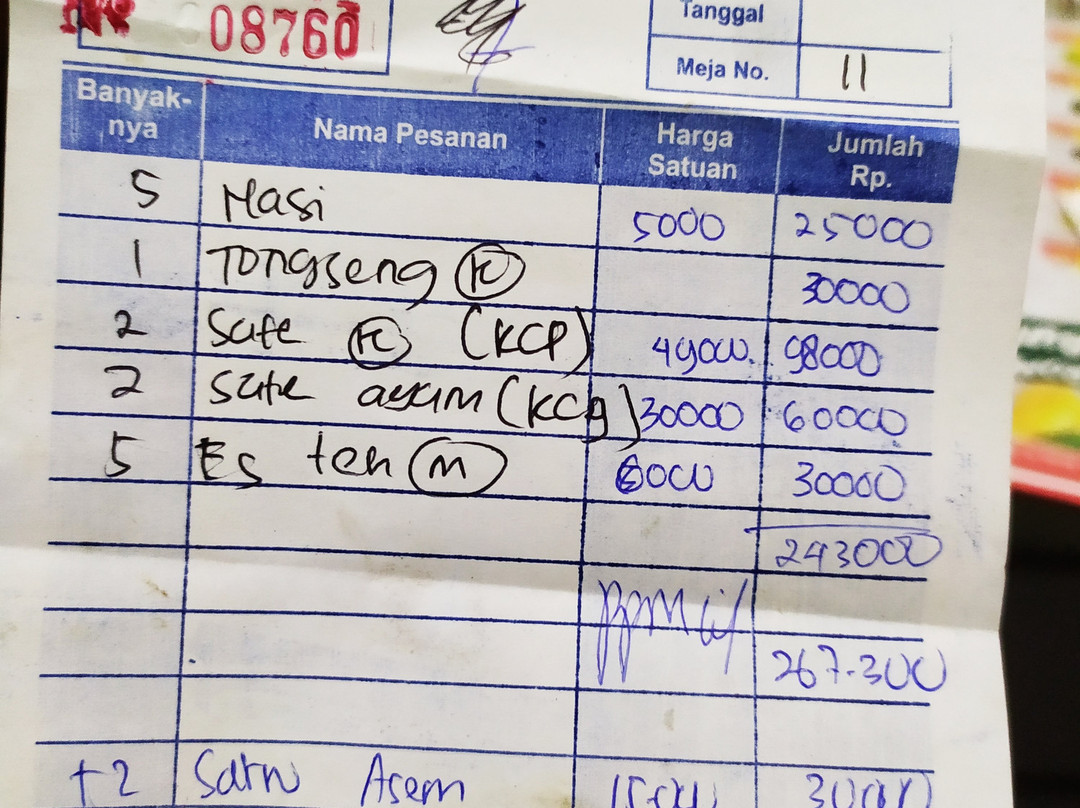 08760
Tanggal
Meja No. 11
Banyak-nya Nama Pesanan Harga Satuan Jumlah Rp.
5 Nasi 5000 25000
1 Tongseng (K) 30000
2 Sate (K) (KCP) 49000 98000
2 Sate ayam (KCg) 30000 60000
5 Es teh (m) 6000 30000
243000
267.300
+2 Asem